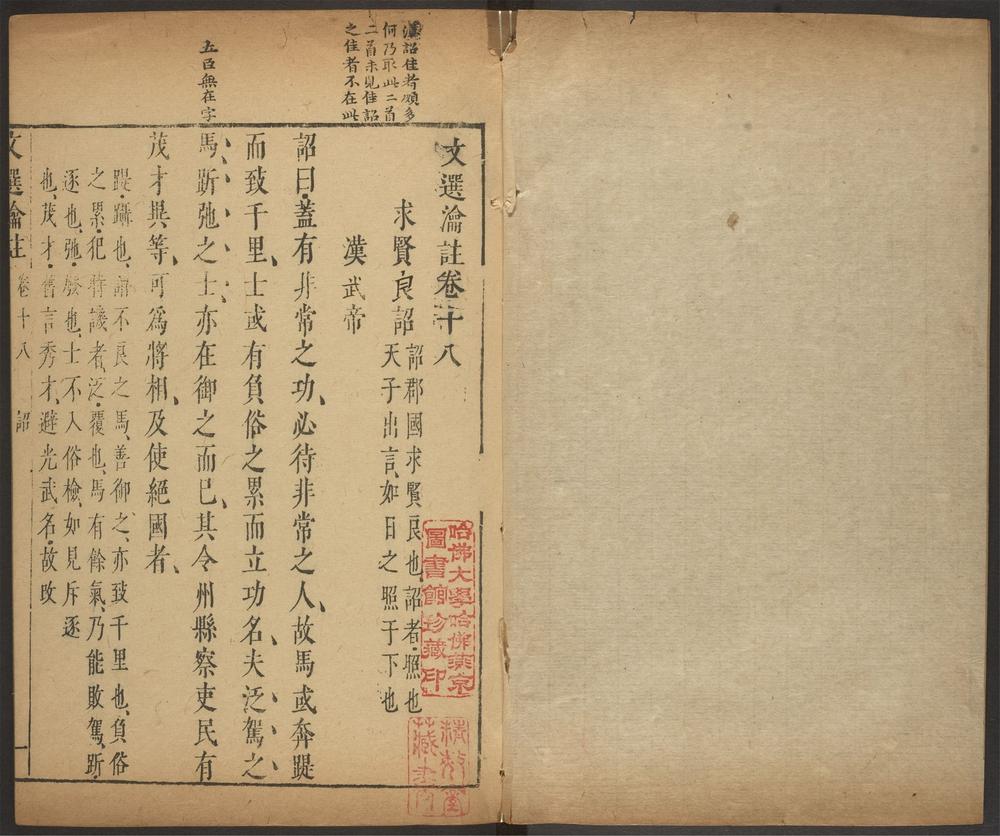 漢詔佳者頗多
何乃取此二首
二首未見佳詔
之佳者不在此
五臣無在字
文選瀹註卷十八
求賢良詔
詔郡國求賢良也詔者照也
天子出言如日之照于下也
漢武帝
詔曰蓋有非常之功必待非常之人故馬或奔踶
而致千里士或有負俗之累而立功名夫泛駕之
馬跅弛之士亦在御之而已其令州縣察吏民有
茂才異等可爲將相及使絕國者
踶蹋也謂不良之馬善御之亦致千里也負俗
之累犯時譏者泛覆也馬有餘氣乃能敗駕跅
逐也弛廢也士不入俗檢如見斥逐
也茂才舊言秀才避光武名故改
文選瀹註 卷十八 詔 一
哈佛大學哈佛燕京
圖書館珍藏印
藏書